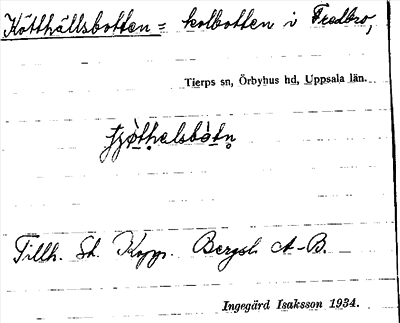 Kötthällsbotten = kolbotten i Fredbro,
Tierps sn, Örbyhus hd, Uppsala län.
Tillh. St. Kopp. Bergsl. A-B.
Ingegärd Isaksson 1934.